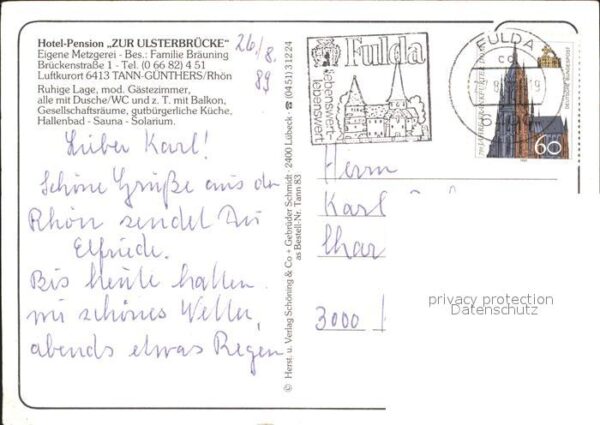 Hotel-Pension „ZUR ULSTERBRÜCKE"
Eigene Metzgerei - Bes.: Familie Bräuning
Brückenstraße 1 - Tel. (0 66 82) 4 51
Luftkurort 6413 TANN-GÜNTHERS/Rhön
Ruhige Lage, mod. Gästezimmer,
alle mit Dusche/WC und z. T. mit Balkon,
Gesellschaftsräume, gutbürgerliche Küche,
Hallenbad - Sauna - Solarium.
26/8.
89
Lieber Karl!
Schöne Grüße aus der
Rhön sendet Dir
Elfriede.
Bis heute hatten
wir schönes Wetter,
abends etwas Regen
© Herst. u. Verlag Schöning & Co + Gebrüder Schmidt · 2400 Lübeck · ☎ (04 51) 3 12 24
as Bestell-Nr. Tann 83
Fulda
lebenswert-
liebenswert
FULDA
60
DEUTSCHE BUNDESPOST
Herrn
Karl
Char
3000
privacy protection
Datenschutz